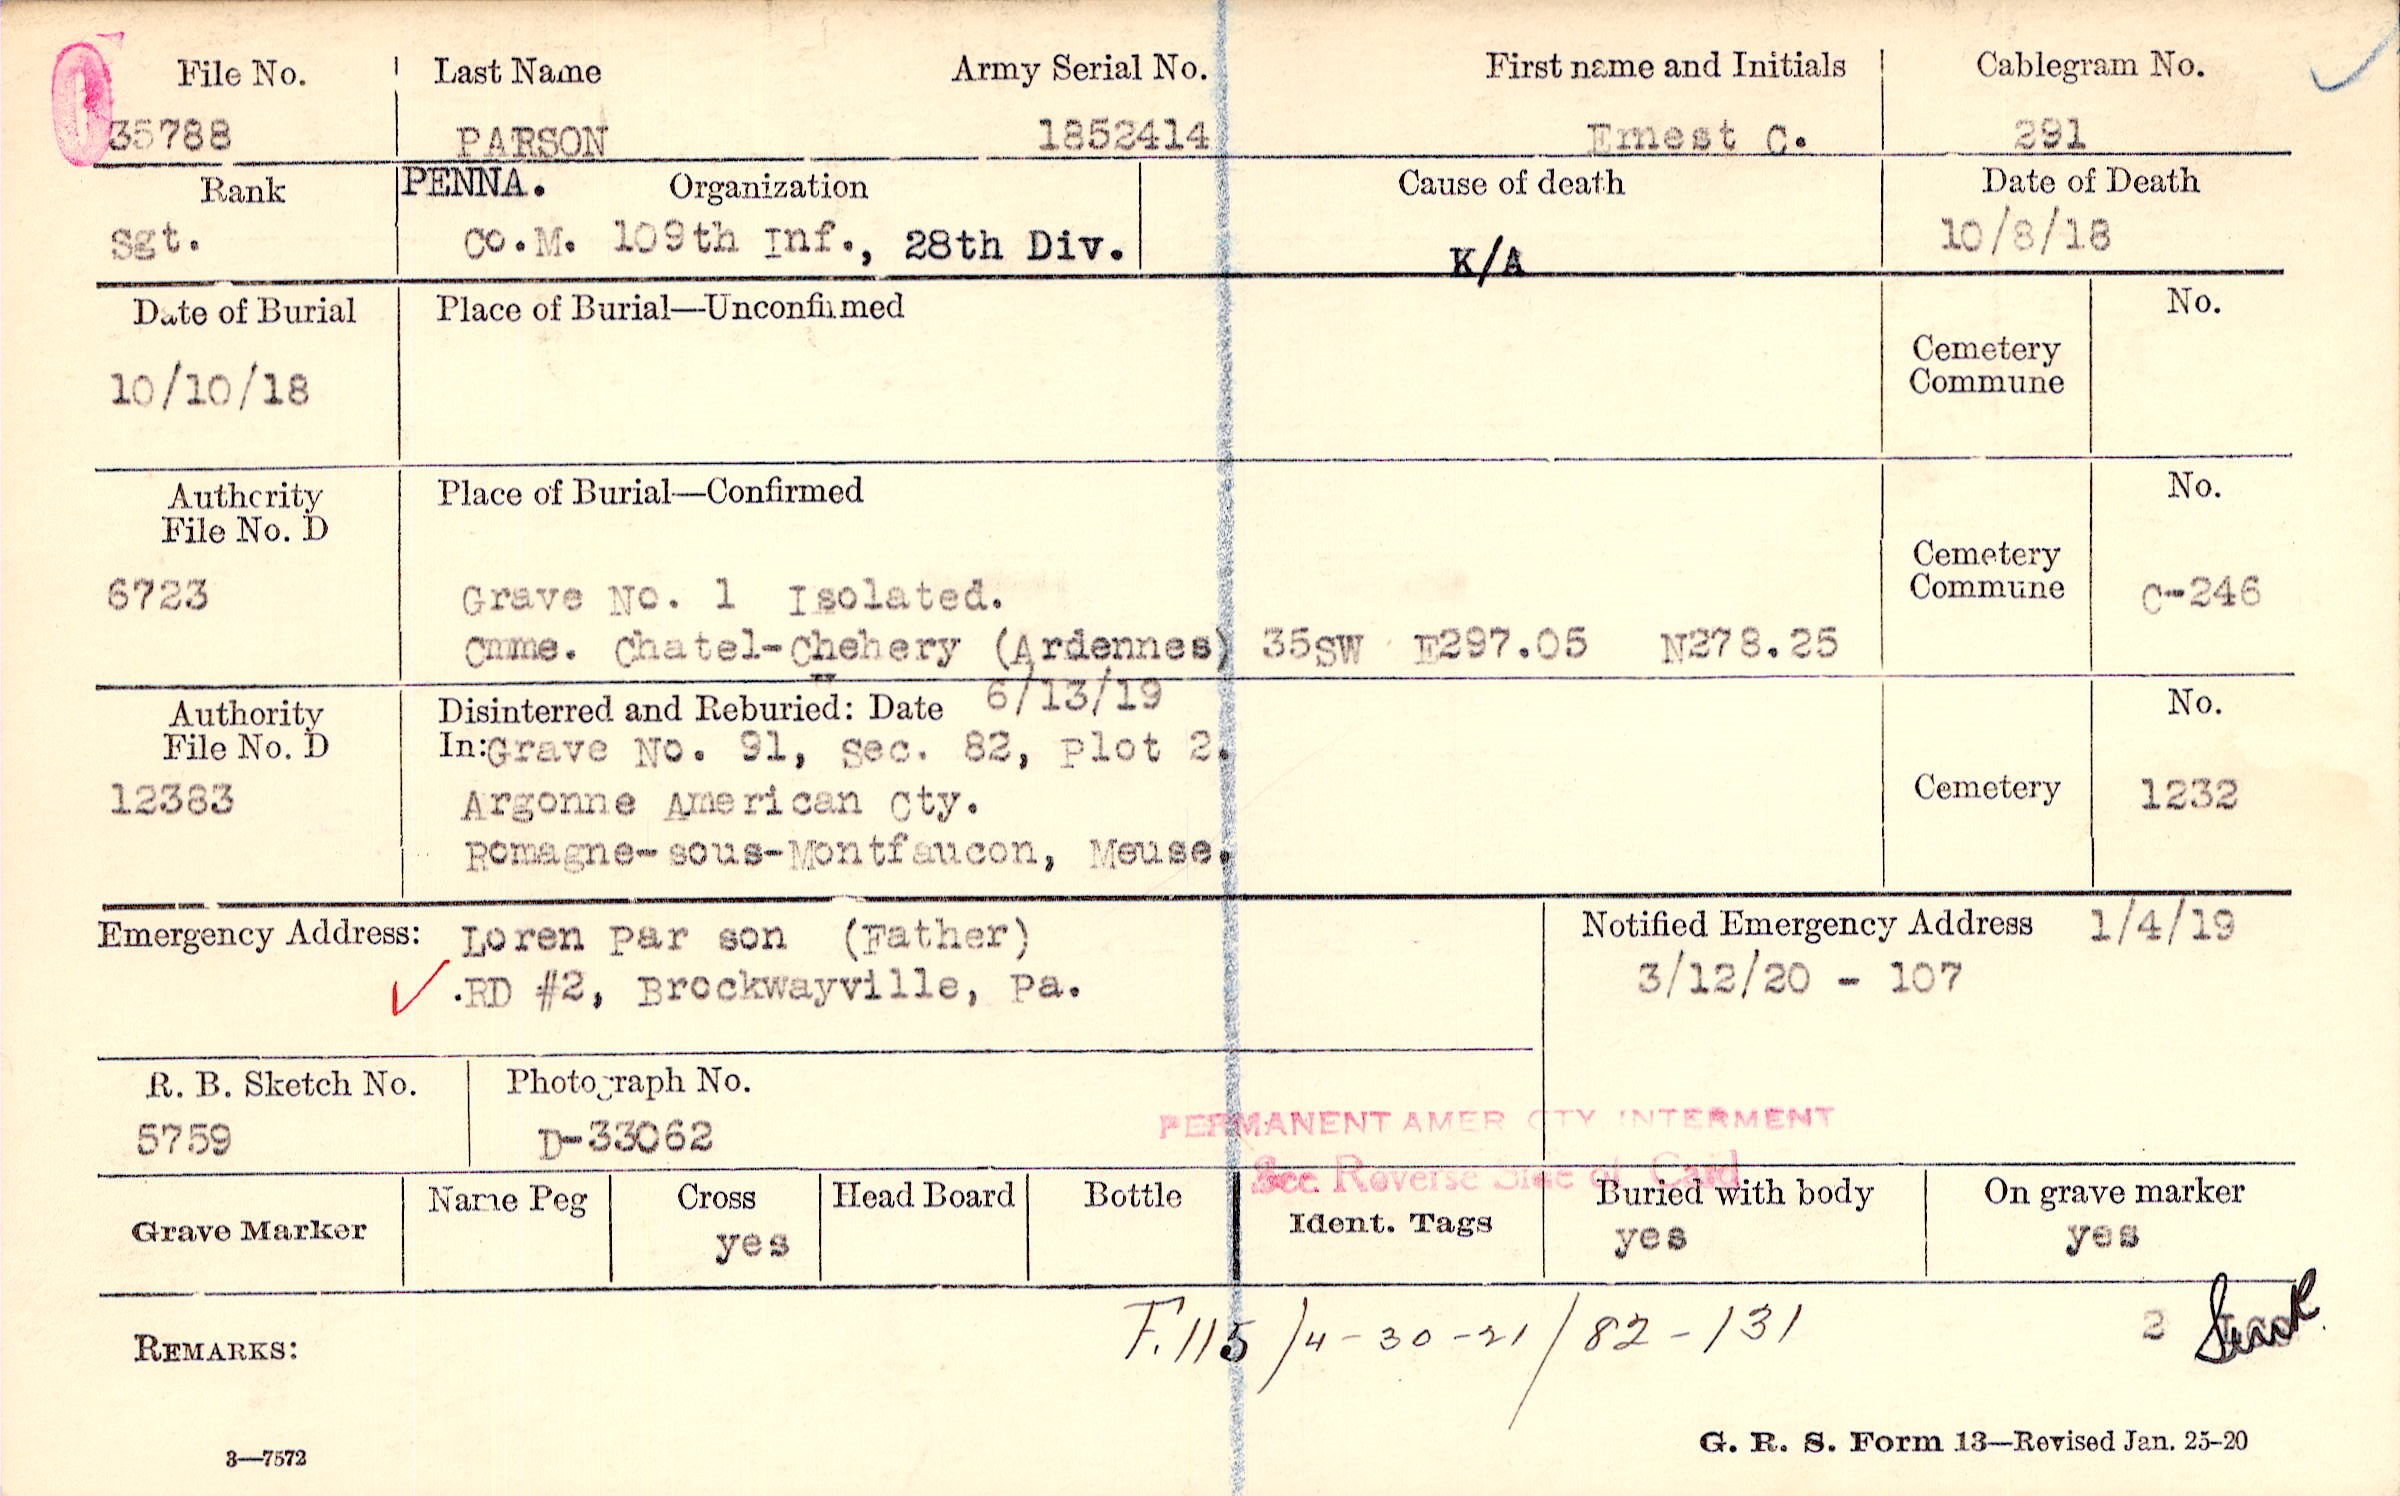 File No. Last Name Army Serial No. First name and Initials Cablegram No.
35788 PARSON 1852414 Ernest C. 291
Rank PENNA. Organization Cause of death Date of Death
Sgt. Co.M. 109th Inf., 28th Div. K/A 10/8/18
Date of Burial Place of Burial—Unconfirmed No.
10/10/18 Cemetery
Commune
Authority Place of Burial—Confirmed No.
File No. D
Cemetery
6723 Grave No. 1 Isolated. Commune C-246
Cmme. Chatel-Chehery (Ardennes) 35SW E297.05 N278.25
Authority Disinterred and Reburied: Date 6/13/19 No.
File No. D In:Grave No. 91, Sec. 82, Plot 2.
12383 Argonne American Cty. Cemetery 1232
Romagne-sous-Montfaucon, Meuse.
Emergency Address: Loren Par son (Father) Notified Emergency Address 1/4/19
.RD #2, Brockwayville, Pa. 3/12/20 - 107
R. B. Sketch No. Photograph No.
5759 D-33062
PERMANENT AMER CTY INTERMENT
See Reverse Side of Card
Grave Marker Name Peg Cross Head Board Bottle Ident. Tags Buried with body On grave marker
yes yes yes
REMARKS: F.115/4-30-21/82-131 2
3—7572 G. R. S. Form 13—Revised Jan. 25-20